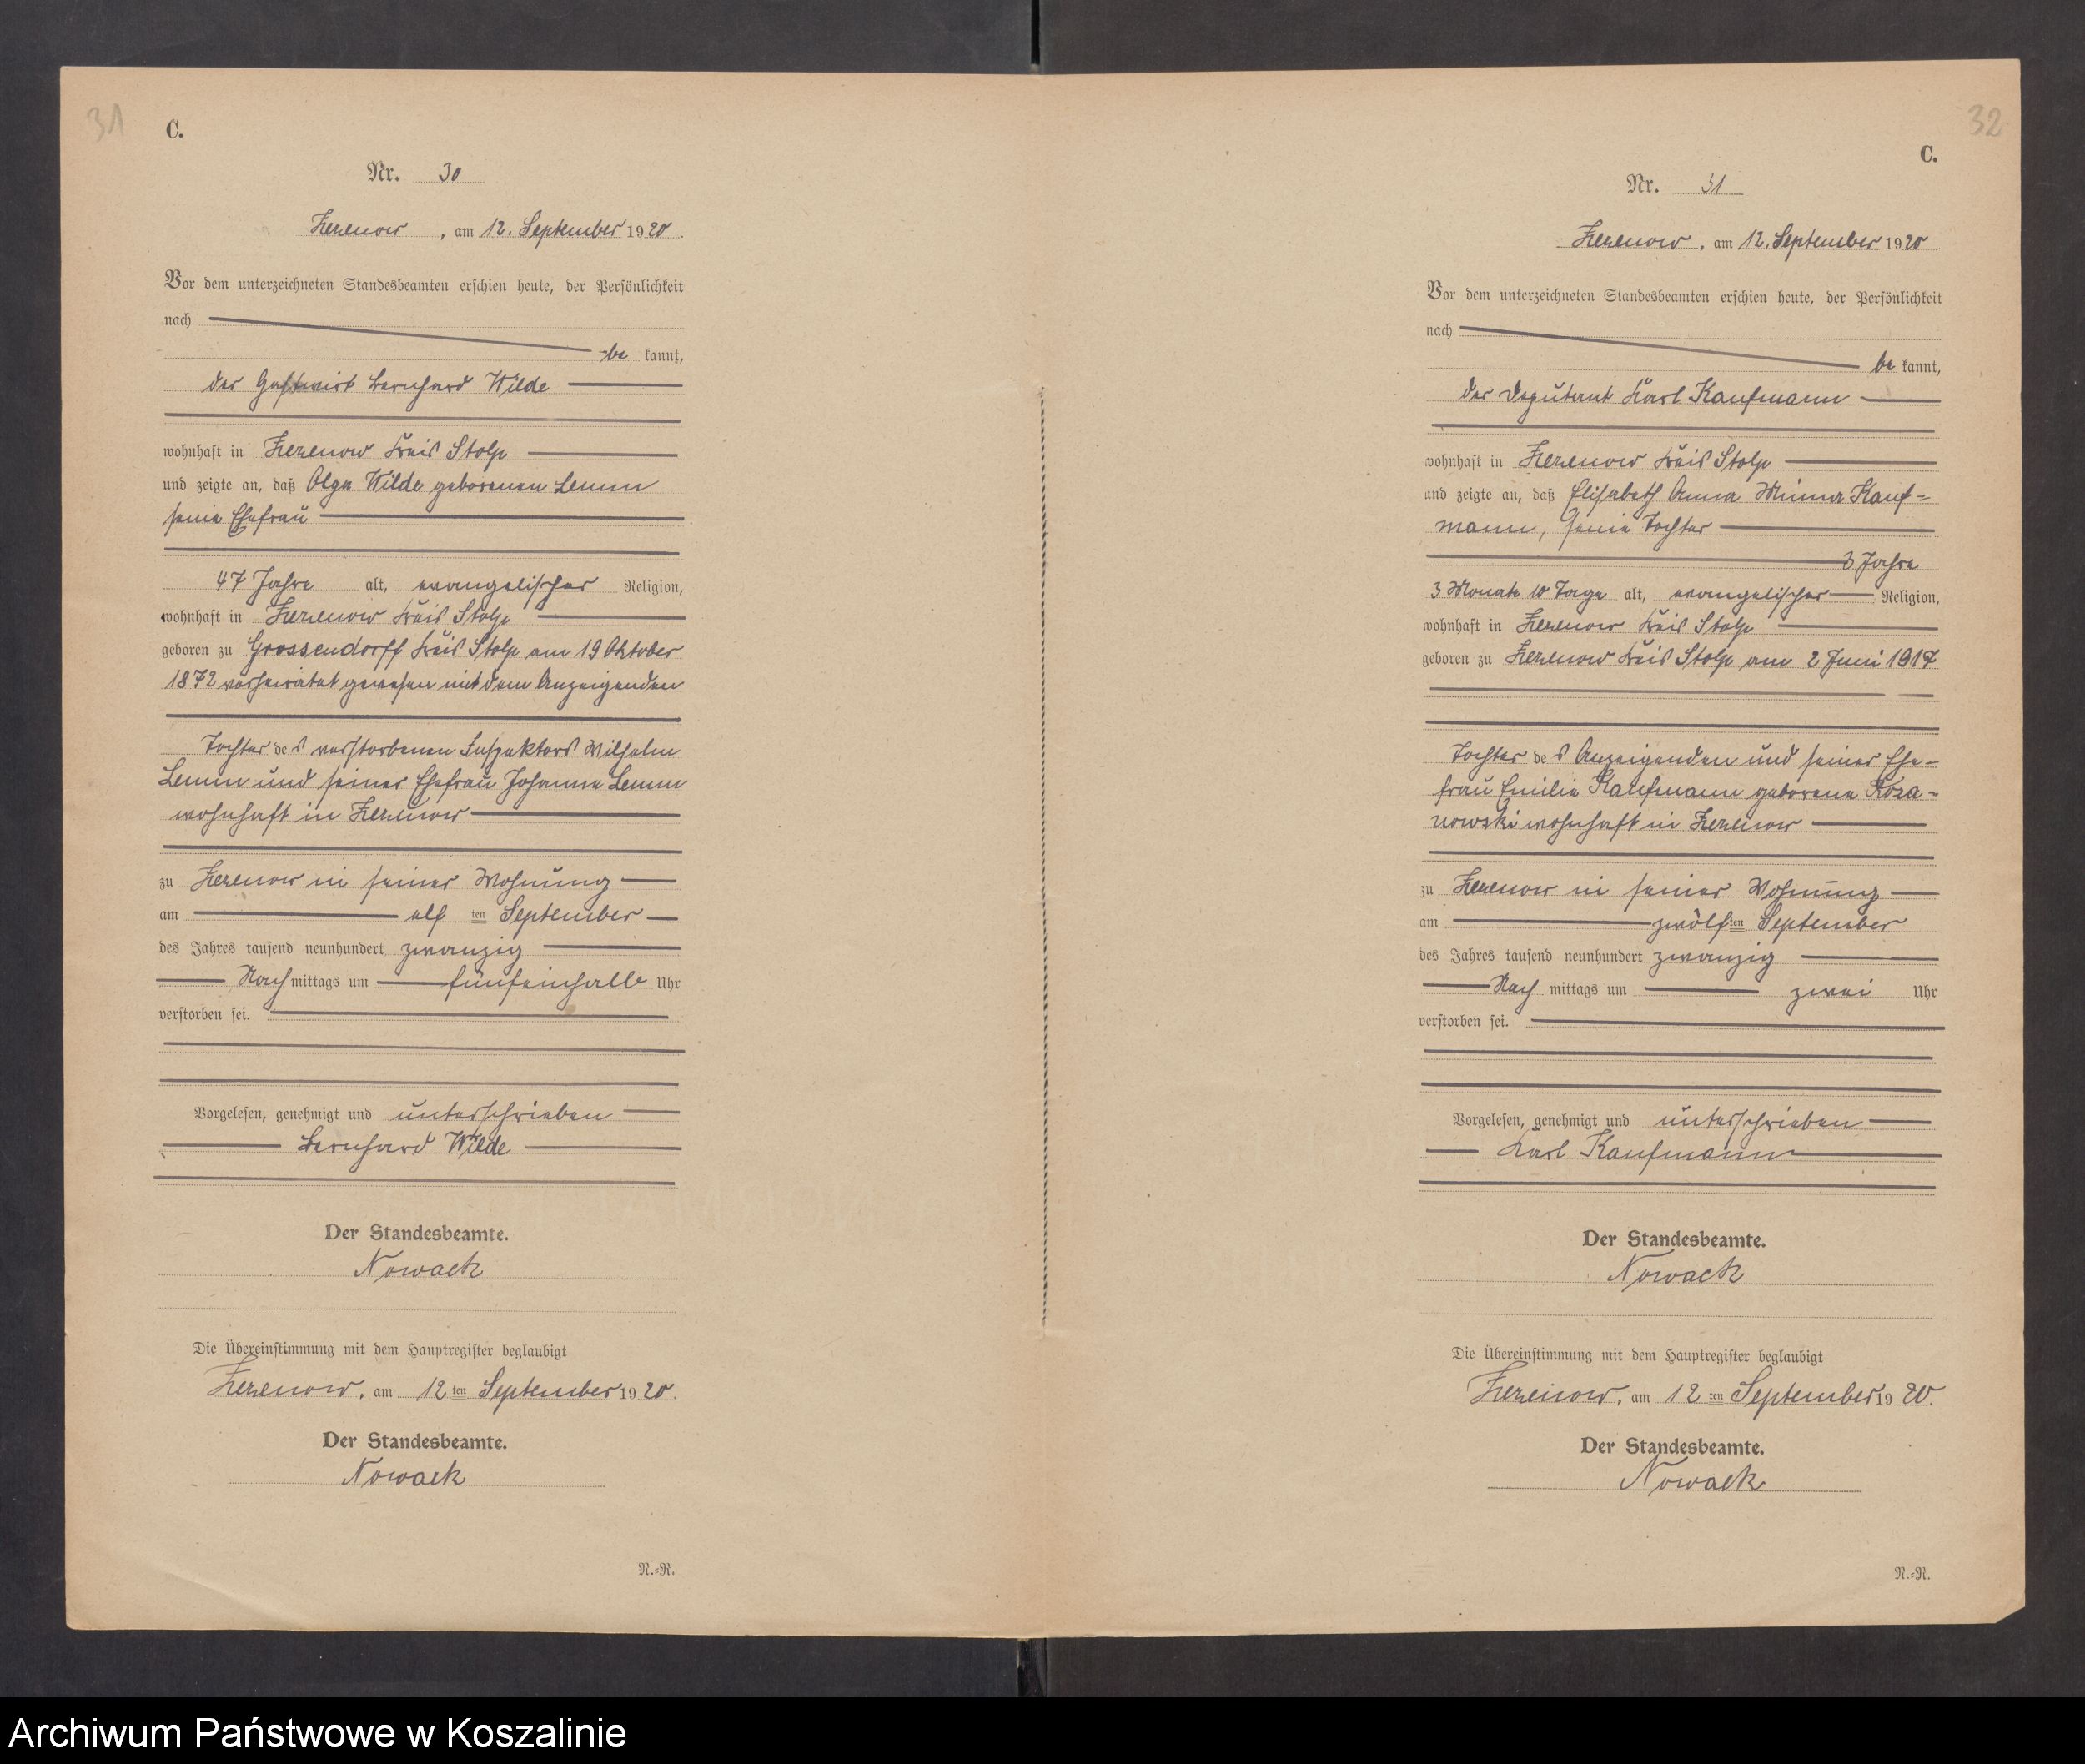 31
C.
Nr. 30
Zezenow, am 12. September 1920.
Vor dem unterzeichneten Standesbeamten erschien heute, der Persönlichkeit
nach
be kannt,
der Gastwirt Bernhard Wilde
wohnhaft in Zezenow Kreis Stolp
und zeigte an, daß Olga Wilde geborenen Lemm
seine Ehefrau
47 Jahre alt, evangelischer Religion,
wohnhaft in Zezenow Kreis Stolp
geboren zu Grossendorff Kreis Stolp am 19 Oktober
1872 verheiratet gewesen mit dem Anzeigenden
Tochter des verstorbenen Inspektors Wilhelm
Lemm und seiner Ehefrau Johanna Lemm
wohnhaft in Zezenow
zu Zezenow in seiner Wohnung
am elf ten September
des Jahres tausend neunhundert zwanzig
Nach mittags um fünfeinhalb Uhr
verstorben sei.
Vorgelesen, genehmigt und unterschrieben
Bernhard Wilde
Der Standesbeamte.
Nowack
Die Übereinstimmung mit dem Hauptregister beglaubigt
Zezenow, am 12 ten September 1920.
Der Standesbeamte.
Nowack
N.=N.
32
C.
Nr. 31
Zezenow, am 12. September 1920
Vor dem unterzeichneten Standesbeamten erschien heute, der Persönlichkeit
nach
be kannt,
der Deputant Karl Kaufmann
wohnhaft in Zezenow Kreis Stolp
und zeigte an, daß Elisabeth Anna Minna Kauf=
mann, seine Tochter
3 Jahre
3 Monate 10 Tage alt, evangelischer Religion,
wohnhaft in Zezenow Kreis Stolp
geboren zu Zezenow Kreis Stolp am 2 Juni 1917
Tochter des Anzeigenden und seiner Ehe=
frau Emilie Kaufmann geborene Koza=
nowski wohnhaft in Zezenow
zu Zezenow in seiner Wohnung
am zwölf ten September
des Jahres tausend neunhundert zwanzig
Nach mittags um zwei Uhr
verstorben sei.
Vorgelesen, genehmigt und unterschrieben
Karl Kaufmann
Der Standesbeamte.
Nowack
Die Übereinstimmung mit dem Hauptregister beglaubigt
Zezenow, am 12 ten September 1920.
Der Standesbeamte.
Nowack
N.=N.
Archiwum Państwowe w Koszalinie